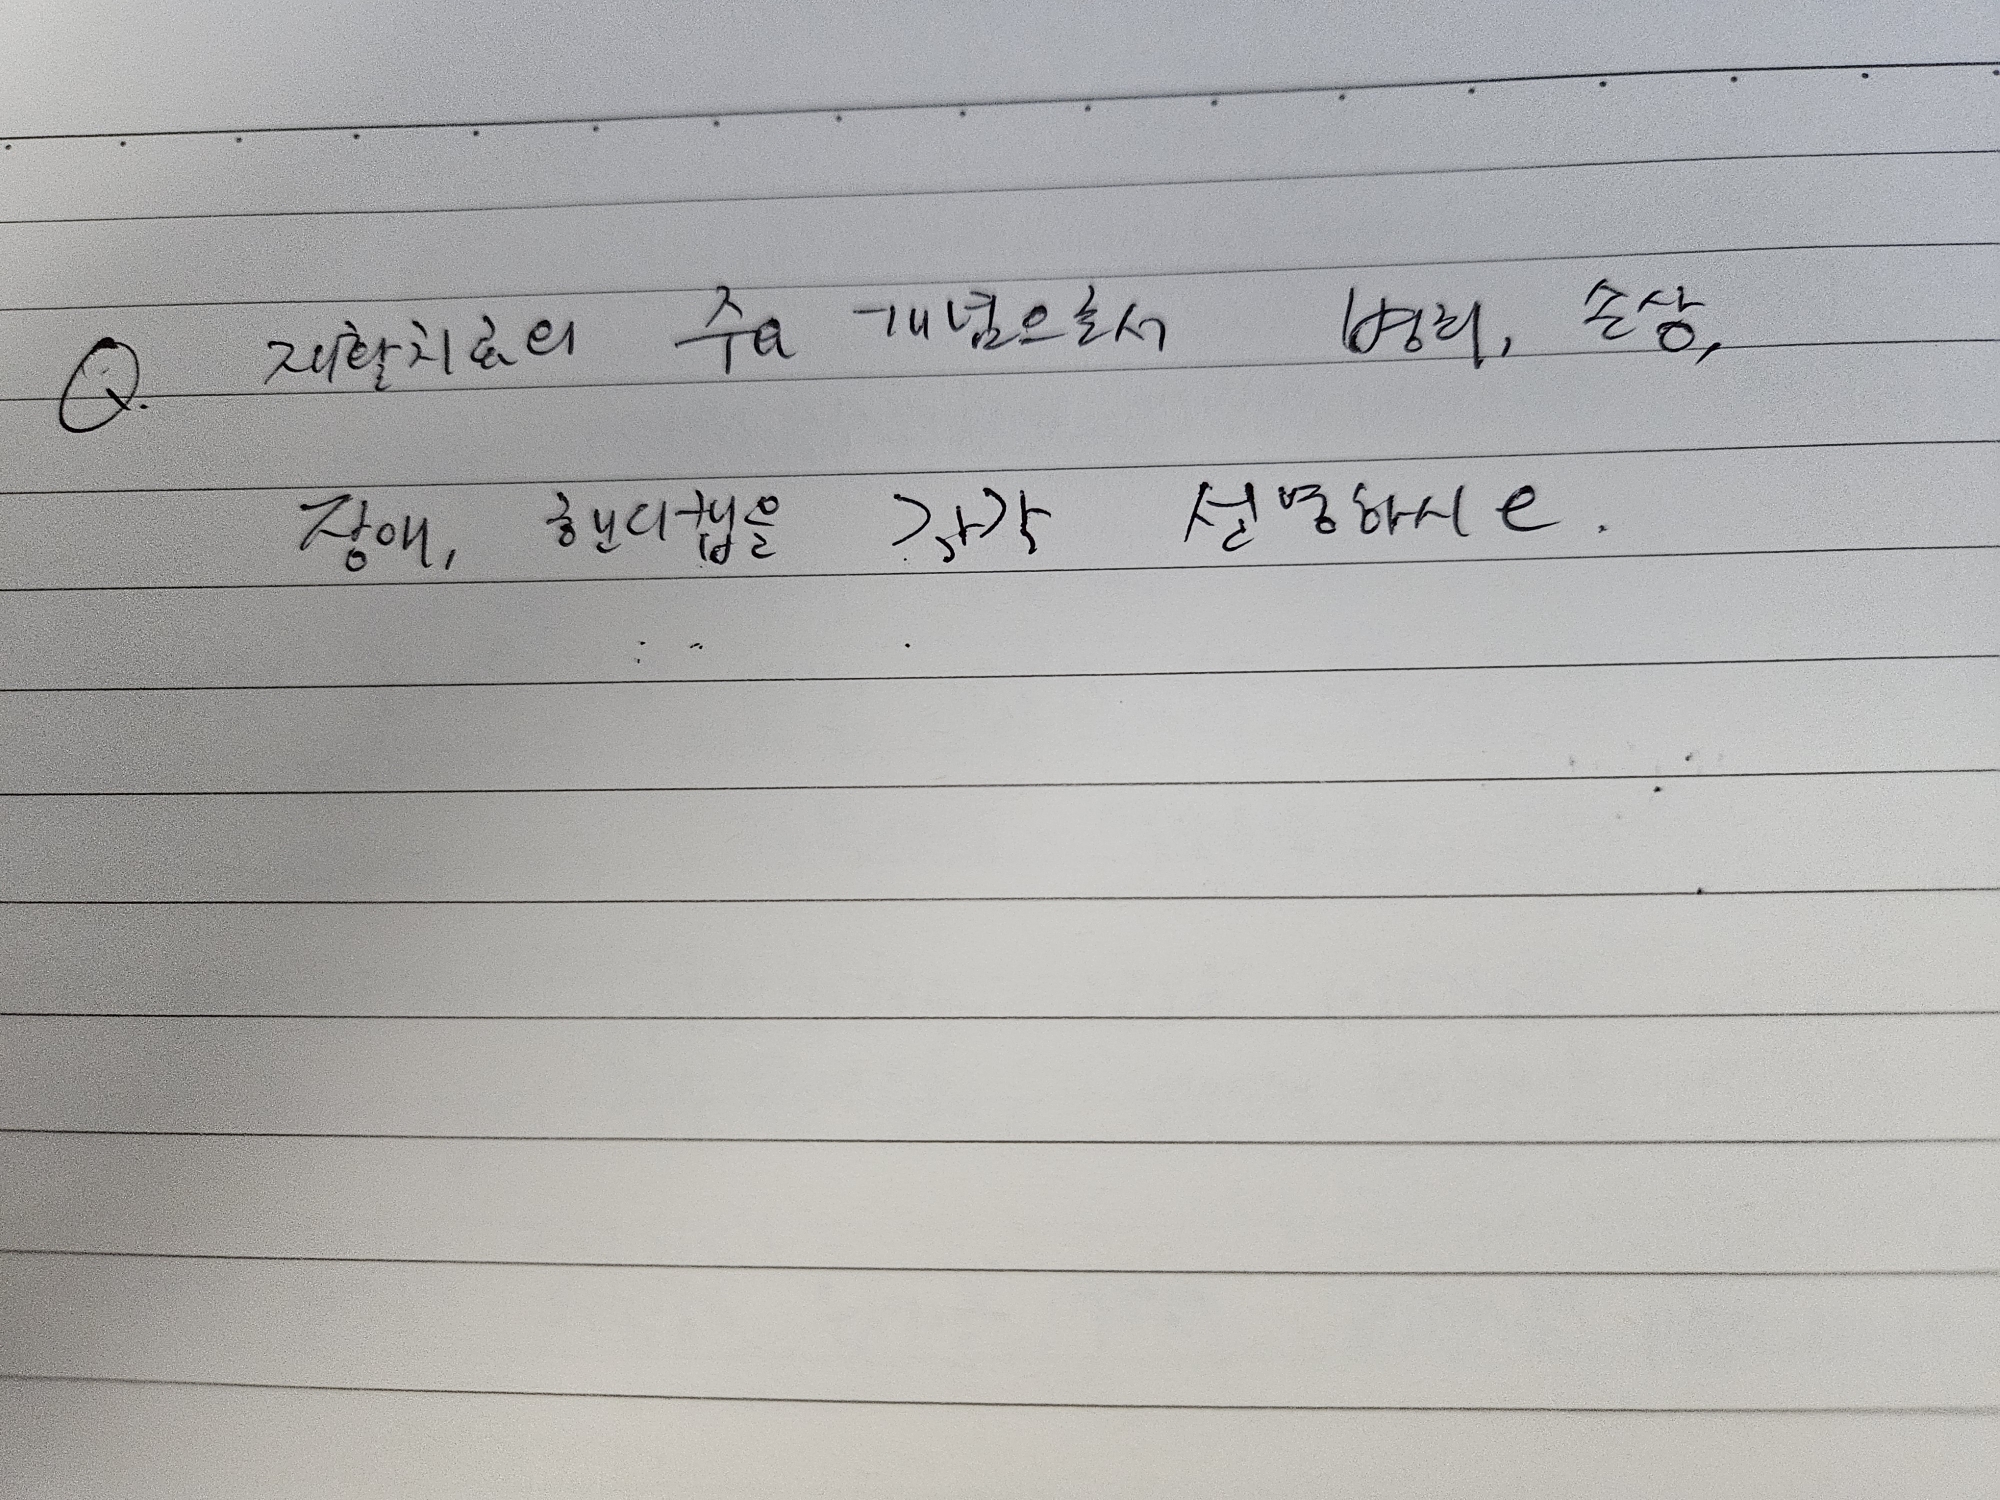 Q. 재활치료의 주요 개념으로서 병리, 손상,
장애, 핸디캡을 각각 설명하시오.